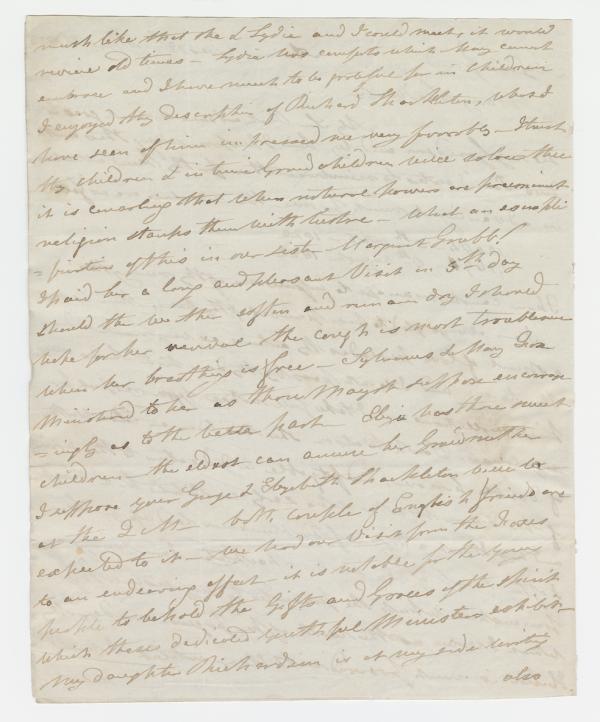 much like that she & Lydia and I could meet, it would
revive old times — Lydia has comforts which Mary cannot
embrace and I have much to be grateful for in Children
I enjoyed thy description of Richard Shackleton, what I
have seen of him impressed me very favorably — I trust
thy children & in time Grand children will solace thee
it is consoling that when natural powers are preeminent
religion stamps them with lustre — what an exempli
=fication of this in our sister Margaret Grubb!
I paid her a long and pleasant Visit on 5th day
should the weather soften and rain day I should
hope for her revival the cough is most troublesome
when her breathing is free — Sylvanus & Mary Fox
Ministered to her as thou Mayst suppose encourag
=ingly as to the better part — Eliza has three sweet
children — the eldest can amuse her Grandmother
I suppose your George & Elizabeth Shackleton will be
at the Q M — both couple of English friends are
expected to it — we had our Visit from the Foxes
to an endearing effect — it is notable for the Young
people to behold the Gifts and Graces of the Spirit
which these dedicated youthful Ministers exhibit —
My daughter Richardson is at my side writing
also